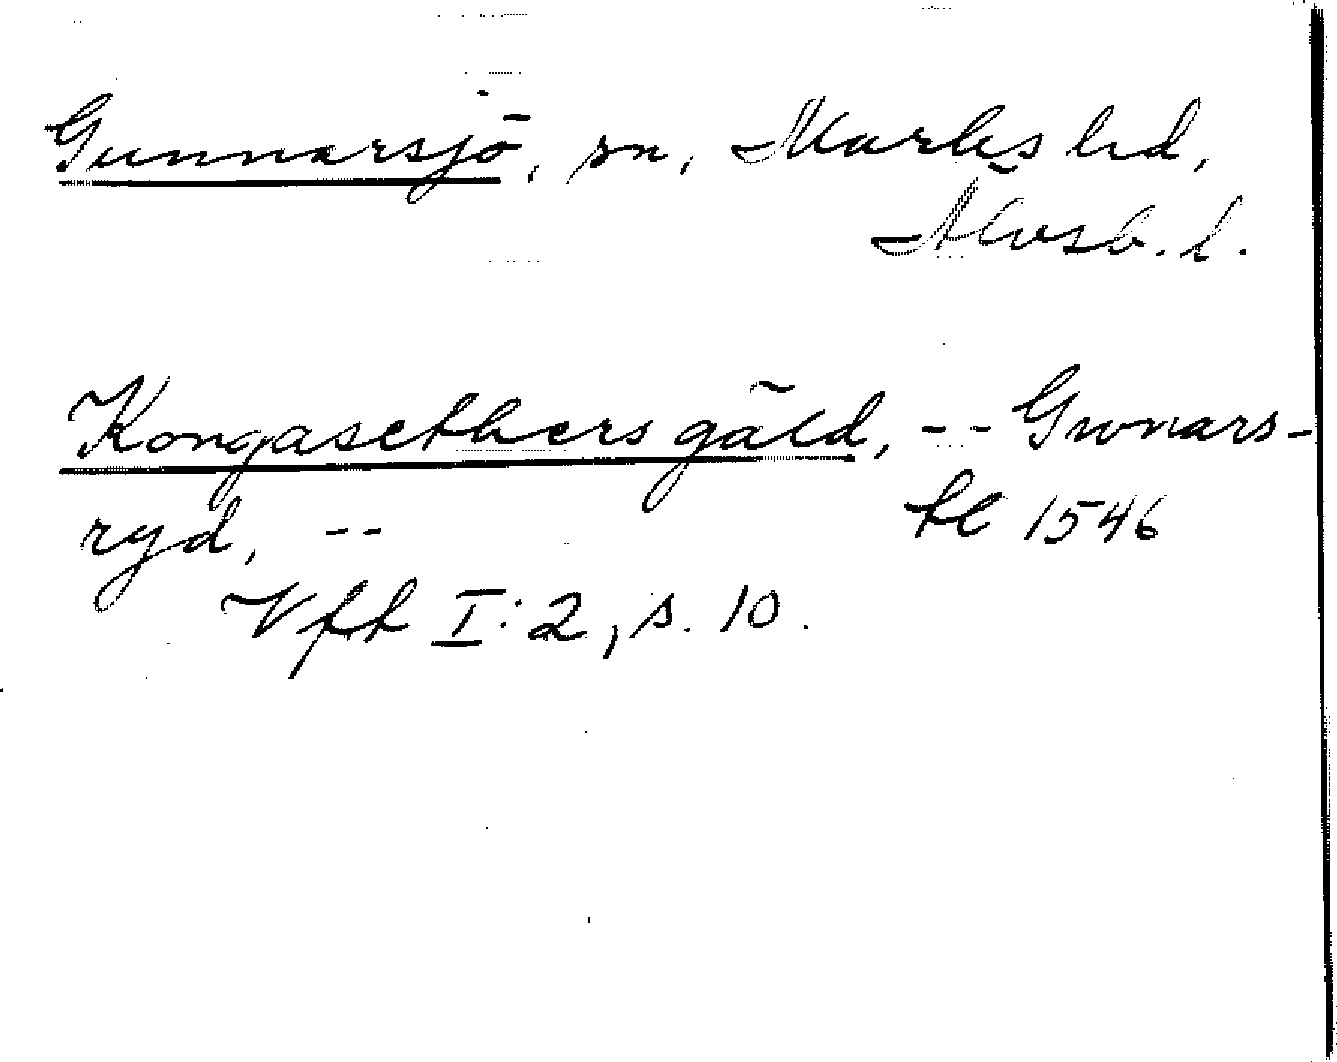 Gunnarsjö, sn, Marks hd,
Älvsb. l.
Kongasethers gäld, -- Gwnars-
ryd, -- tl 1546
Vfft I:2, s. 10.